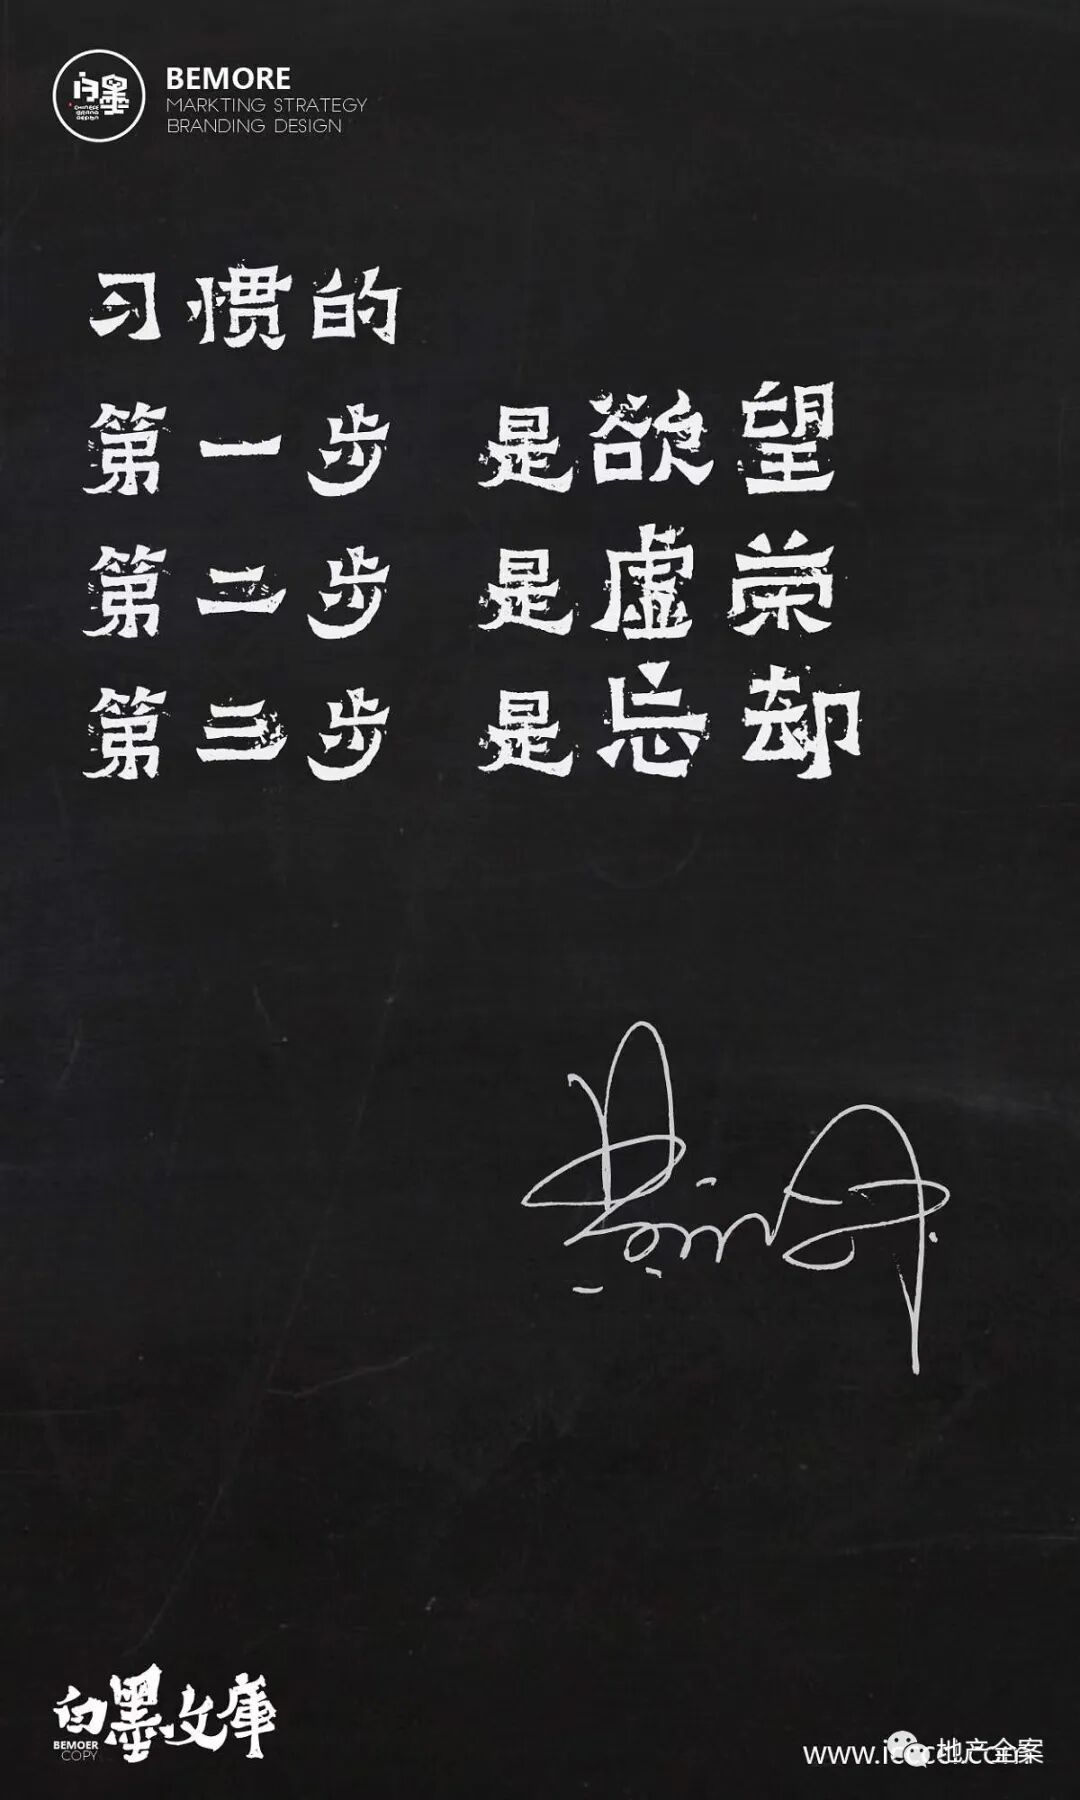 白墨
CHINESE
BRAND
DESIGN
BEMORE
MARKTING STRATEGY
BRANDING DESIGN
习惯的
第一步 是欲望
第二步 是虚荣
第三步 是忘却
白墨文庫
BEMOER
COPY
地产全案